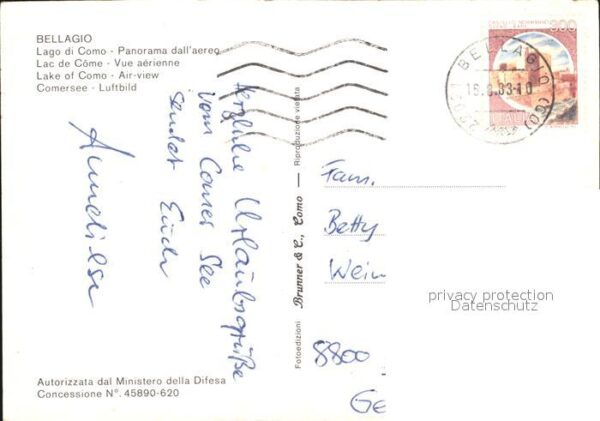 BELLAGIO
Lago di Como - Panorama dall'aereo
Lac de Côme - Vue aérienne
Lake of Como - Air-view
Comersee - Luftbild
Herzliche Urlaubsgrüße
vom Comer See
sendet Euch
Annelise
Autorizzata dal Ministero della Difesa
Concessione N°. 45890-620
Fotoedizioni Brunner & C., Como — Riproduzione vietata
300
BELLAGIO
(CO)
Fam.
Betty
Wein
8800
Ge
privacy protection
Datenschutz